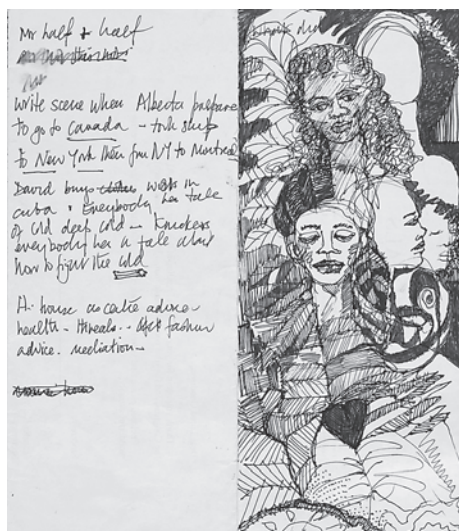 Mr half & half
write scene when Alberta prepare
to go to Canada – took ship
to New York then from NY to Montreal
David buys works in
cuba. Everybody has tale
of cold deep cold –
everybody has a tale about
how to fight the cold
house as centre advice
health – threats –
advice. mediation –